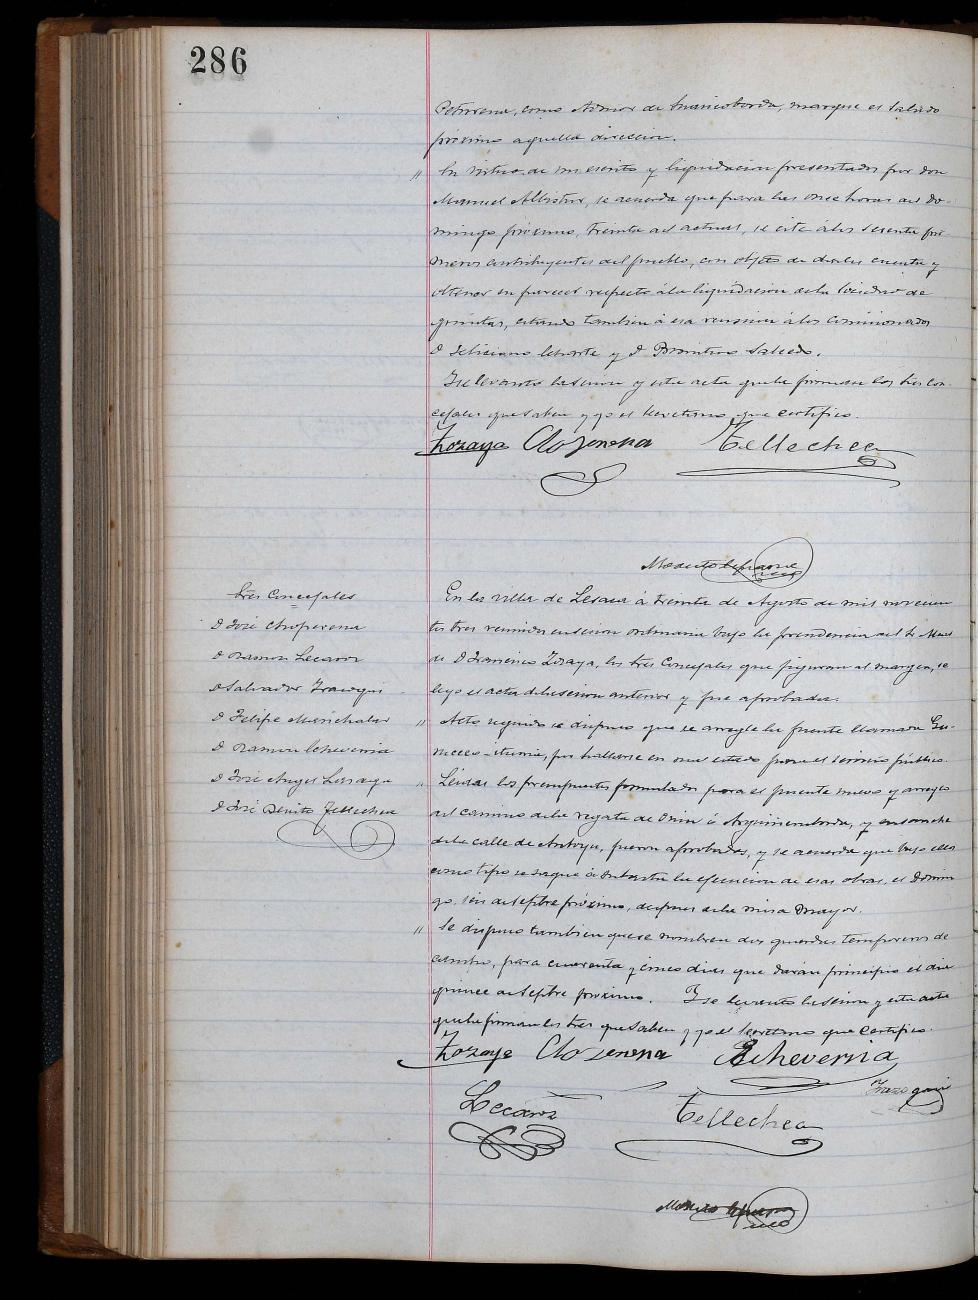 286
como Admor de marque el sabado
próximo aquella dirección.
" En virtud de un escrito y liquidación presentados por don
Manuel Albistur, se acuerda que para las once horas del do-
mingo próximo, treinta del actual, se cite á los sesenta pri-
meros contribuyentes del pueblo, con objeto de darles cuenta y
obtener su parecer respecto á la liquidación de la de
quintas, citando tambien á esa reunion á los comisionados
D Feliciano y D Salcedo.
Y se levantó la sesion y esta acta que la firman los Sres Con-
cejales que saben y yo el Secretario que certifico.
Zozaya Choperena Tellechea
Modesto
Sres Concejales
D José Choperena
D Ramon Lecaroz
D Salvador Irazoqui
D Felipe Marichalar
D Ramon Echeverria
D José Angel
D José Benito Tellechea
En la villa de Lesaca á treinta de Agosto de mil novecien
tos tres reunidos en sesion ordinaria bajo la presidencia del Sr Alcal
de D Francisco Zozaya, los Sres Concejales que figuran al margen, se
leyó el acta de la sesion anterior y fue aprobada.
" Acto seguido se dispuso que se arregle la fuente llamada
por hallarse en mal estado para el servicio público.
" Leidos los presupuestos formulados para el puente nuevo y arreglo
del camino de la regata de Onin á y ensanche
de la calle de fueron aprobados, y se acuerda que bajo ellos
como tipo se saque á subasta la ejecucion de esas obras, el Domin
go seis de Septbre próximo, despues de la misa mayor.
" Se dispuso tambien que se nombren dos guardas temporeros de
campo, para cuarenta y cinco dias que darán principio el dia
quince de Septbre próximo. Y se levantó la sesion y esta acta
que la firman los Sres que saben y yo el Secretario que certifico.
Zozaya Choperena Echeverria
Irazoqui
Lecaroz Tellechea
Modesto